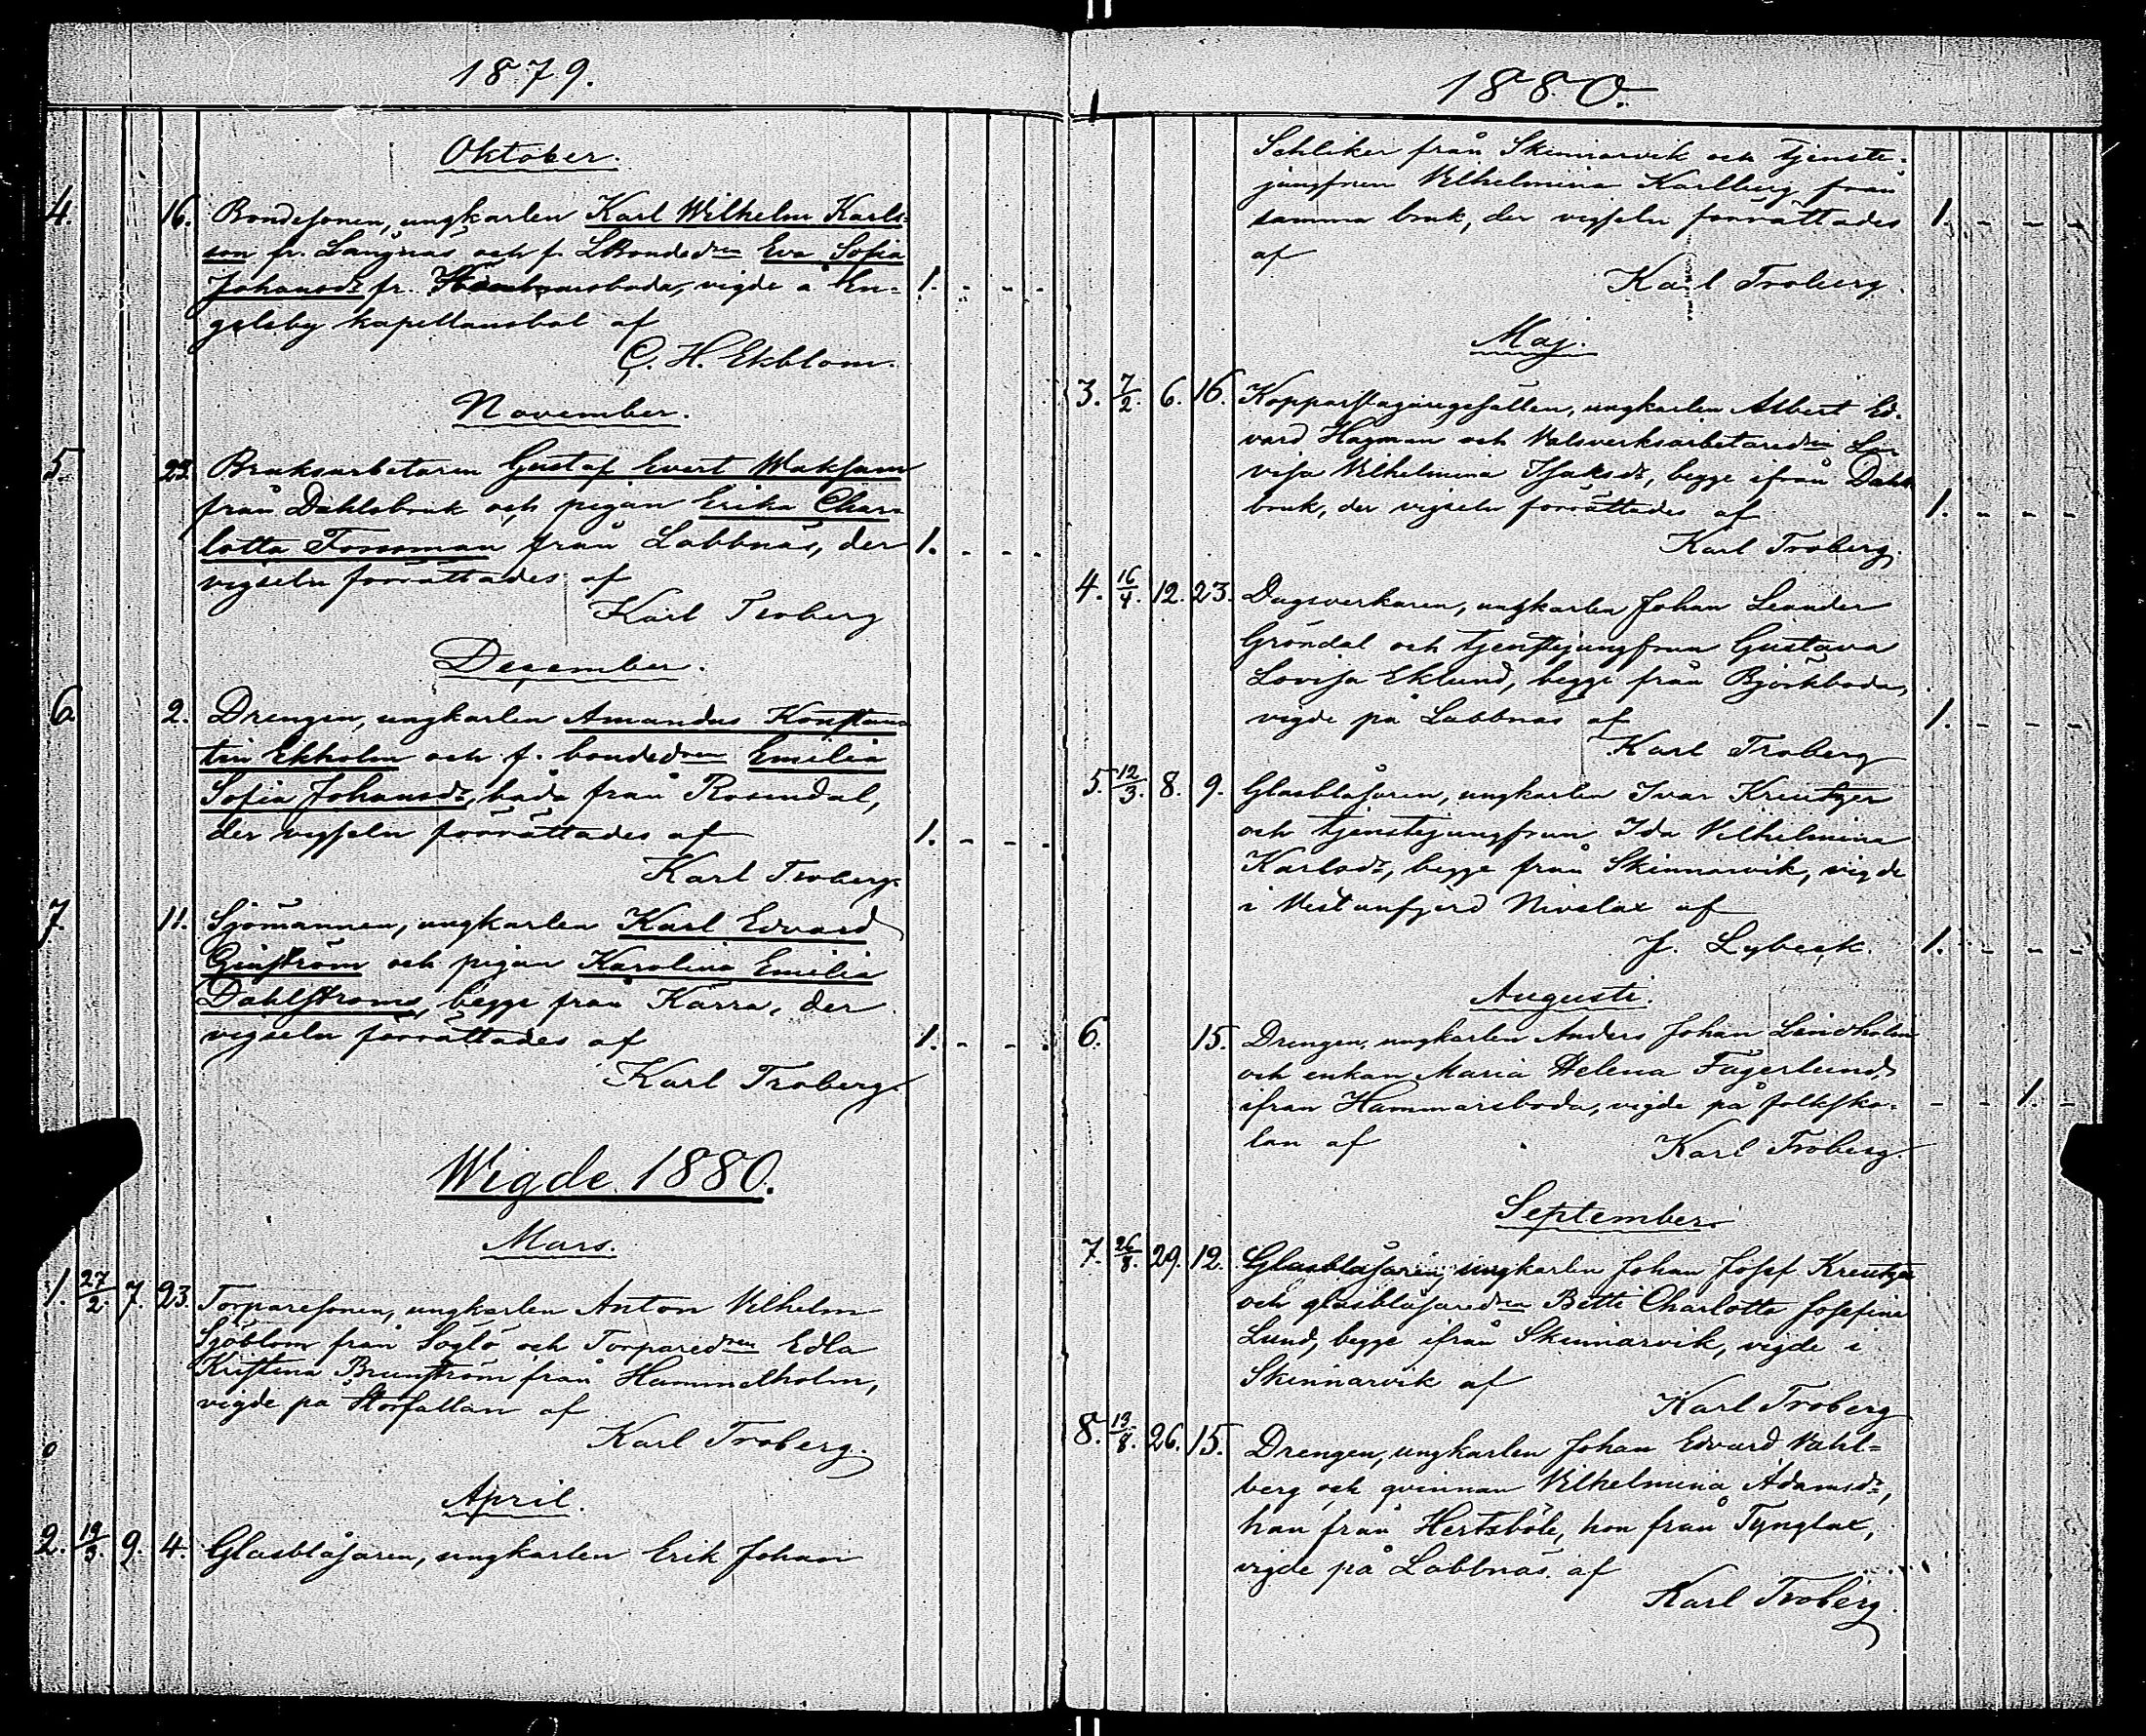 1879.
Oktober.
4. 16. Bondesonen, ungkarlen Karl Wilhelm Karls-
son fr. Långnäs och f. LBondedren Eva Sofia
Johansdr fr. Hammarsboda, vigde å En- 1. - - -
gelsby kapellansbol af
G. H. Ekblom.
November.
5 23. Bruksarbetaren Gustaf Evert Waksam
från Dahlsbruk och pigan Erika Char-
lotta Forsman från Labbnäs, der 1. - - -
vigseln förrättades af
Karl Troberg
December.
6 2. Drengen, ungkarlen Amandus Konstan-
tin Ekholm och f. bondedren Emilia
Sofia Johansdr, båda från Rosendal,
der vigseln förrättades af 1. - - -
Karl Troberg
7. 11. Sjömannen, ungkarlen Karl Edvard
Ginström och pigan Karolina Emilia
Dahlströms, begge från Kärra, der
vigseln förrättades af 1. - - -
Karl Troberg.
Wigde 1880.
Mars.
1. 27/2. 7. 23. Torparesonen, ungkarlen Anton Vilhelm
Sjöblom från Söglö och Torparedren Edla
Kristina Brunström från Hammelholm,
vigde på af
Karl Troberg.
April.
2. 19/3. 9. 4. Glasblåsaren, ungkarlen Erik Johan
1880.
Schliker från Skinnarvik och tjenste-
jungfrun Vilhelmina Karlberg från
samma bruk, der vigseln förrättades 1. - - -
af
Karl Troberg.
Maj.
3. 7/2. 6. 16. Kopparslagaregesällen, ungkarlen Albert Ed-
vard Hagman och Valsverksarbetaredren Lo-
visa Vilhelmina Isaksdr, begge ifrån Dahls
bruk, der vigseln förrättades af 1. - - -
Karl Troberg.
4. 16/4. 12. 23. Dagsverkaren, ungkarlen Johan Leander
Gröndal och tjenstejungfrun Gustava
Lovisa Eklund, begge från Björkboda,
vigde på Labbnäs af 1. - - -
Karl Troberg
5. 12/3. 8. 9. Glasblåsaren, ungkarlen Ivar Kreutzer
och tjenstejungfrun Ida Vilhelmina
Karlsdr, begge från Skinnarvik, vigde
i Vestanfjerd Nivelax af
J. Lybeck. 1. - - -
Augusti.
6. 15. Drengen, ungkarlen Anders Johan Lindholm
och enkan Maria Helena Fagerlund,
ifrån Hammarsboda, vigde på folksko- - - 1. -
lan af Karl Troberg
September
7. 26/8. 29. 12. Glasblåsaren, ungkarlen Johan Josef Kreutzer
och glasblåsaredren Betti Charlotta Josefina
Lund, begge ifrån Skinnarvik, vigde i
Skinnarvik af
Karl Troberg
8. 13/8. 26. 15. Drengen, ungkarlen Johan Edvard Vahl-
berg och qvinnan Vilhelmina Adamsdr,
han från Hertsböle, hon från Tynglax,
vigde på Labbnäs af
Karl Troberg.